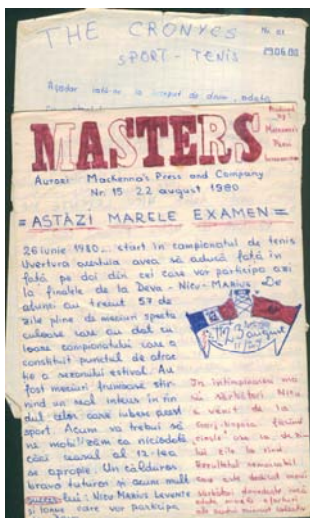 THE CRONYES
No. 61
29.06.80
SPORT - TENIS
Așadar iată-ne la început de drum, odată
MASTERS
Autori Mackenna's Press and Company
Nr. 15 22 august 1980
= ASTĂZI MARELE EXAMEN =
26 iunie 1980... start în campionatul de tenis
Uvertura acestuia avea să aducă față în
față pe doi din cei care vor participa azi
la finalele de la Deva - Nicu - MARIUS. De
atunci au trecut 57 de
zile pline de meciuri specta
culoase care au dat cu
loare campionatului care a
constituit punctul de atrac
ție a sezonului estival. Au
fost meciuri frumoase stîr
nind un real interes în rîn
dul celor care iubesc acest
sport. Acum va trebui să
ne mobilizăm ca niciodată
căci ceasul al 12-lea
se apropie. Un călduros
bravo tuturor și acum mult
succes lui: Nicu Marius Levente
și Ionuț care vor participa
23 august
În întîmpinarea ma
rii sărbători Nicu
a venit de la
făcînd
lui zile la rînd
Rezultatul remarcabil
este dedicat marii
sărbători